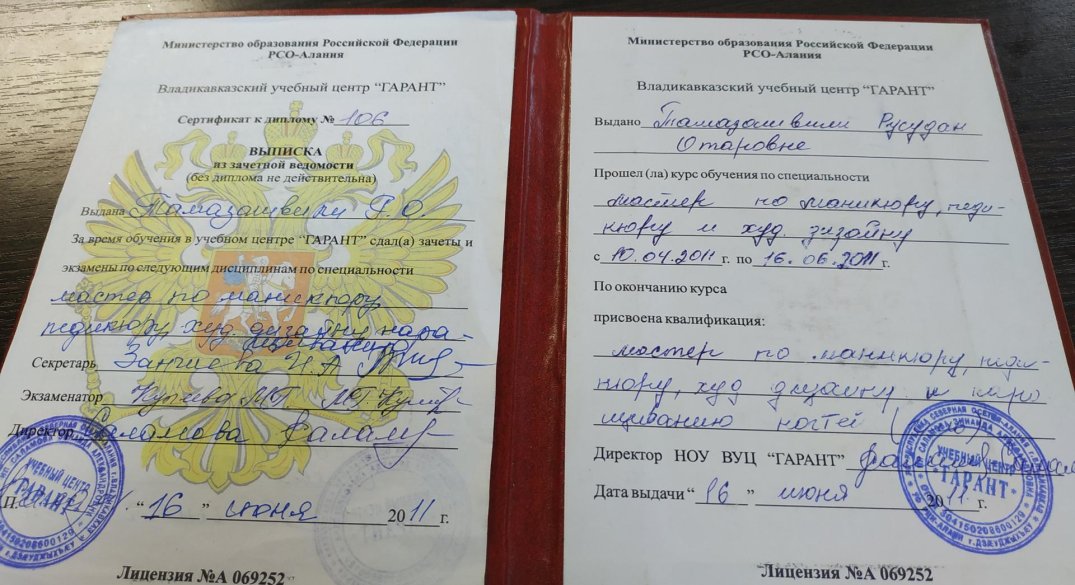 Министерство образования Российской Федерации
РСО-Алания
Владикавказский учебный центр “ГАРАНТ”
Сертификат к диплому № 106
ВЫПИСКА
из зачетной ведомости
(без диплома не действительна)
Выдана Тамазашвили Р.О.
За время обучения в учебном центре “ГАРАНТ” сдал(а) зачеты и
экзамены по следующим дисциплинам по специальности
мастер по маникюру,
педикюру, худ. дизайну нара-
щиванию
Секретарь
Экзаменатор
Директор Саламова
“ 16 ” июня 2011 г.
Лицензия №А 069252
УЧЕБНЫЙ ЦЕНТР
ГАРАНТ
Министерство образования Российской Федерации
РСО-Алания
Владикавказский учебный центр “ГАРАНТ”
Выдано Тамазашвили Русудан
Отаровне
Прошел (ла) курс обучения по специальности
мастер по маникюру, педи-
кюру и худ. дизайну
с 10.04.2011 г. по 16.06.2011 г.
По окончанию курса
присвоена квалификация:
мастер по маникюру, педи-
кюру, худ дизайну и нара
щиванию ногтей
Директор НОУ ВУЦ “ГАРАНТ”
Дата выдачи “ 16 ” июня 2011 г.
Лицензия №А 069252
УЧЕБНЫЙ ЦЕНТР
ГАРАНТ